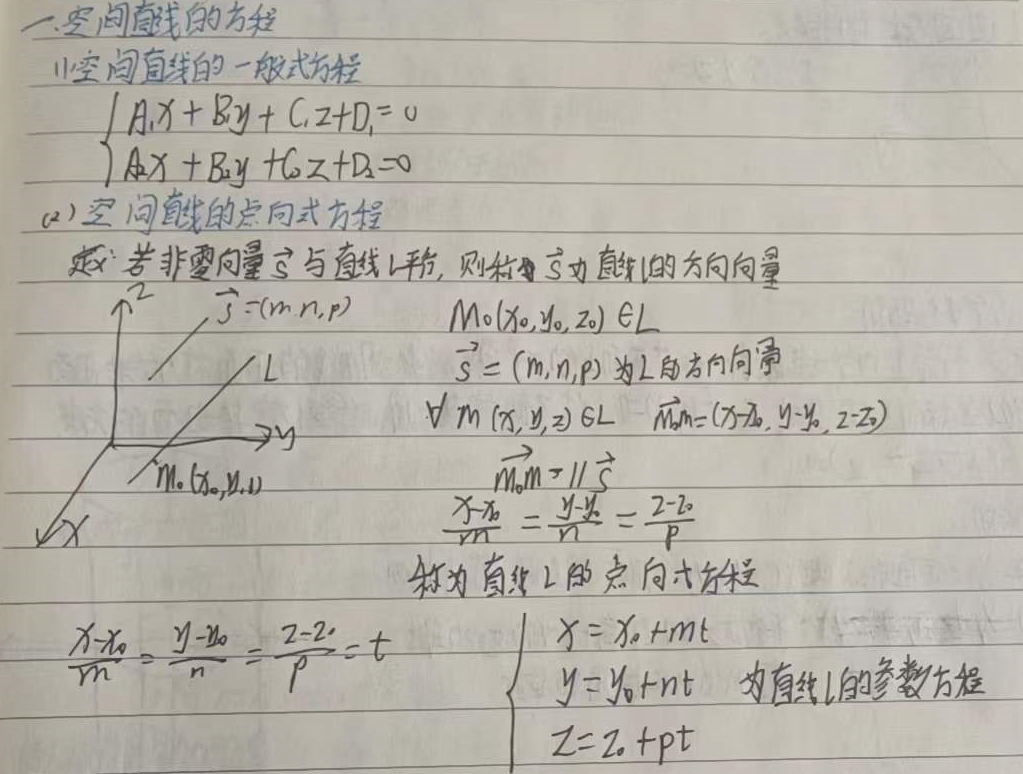 一.空间直线的方程
(1)空间直线的一般式方程
A₁x+B₁y+C₁z+D₁=0
A₂x+B₂y+C₂z+D₂=0
(2)空间直线的点向式方程
定义:若非零向量s⃗与直线L平行,则称为s⃗为直线L的方向向量
z
s⃗=(m,n,p)
L
y
M₀(x₀,y₀,z₀)
x
M₀(x₀,y₀,z₀)∈L
s⃗=(m,n,p)为L的方向向量
∀m(x,y,z)∈L m₀m⃗=(x-x₀,y-y₀,z-z₀)
m₀m⃗ // s⃗
(x-x₀)/m=(y-y₀)/n=(z-z₀)/p
称为直线L的点向式方程
(x-x₀)/m=(y-y₀)/n=(z-z₀)/p=t
x=x₀+mt
y=y₀+nt 为直线L的参数方程
z=z₀+pt